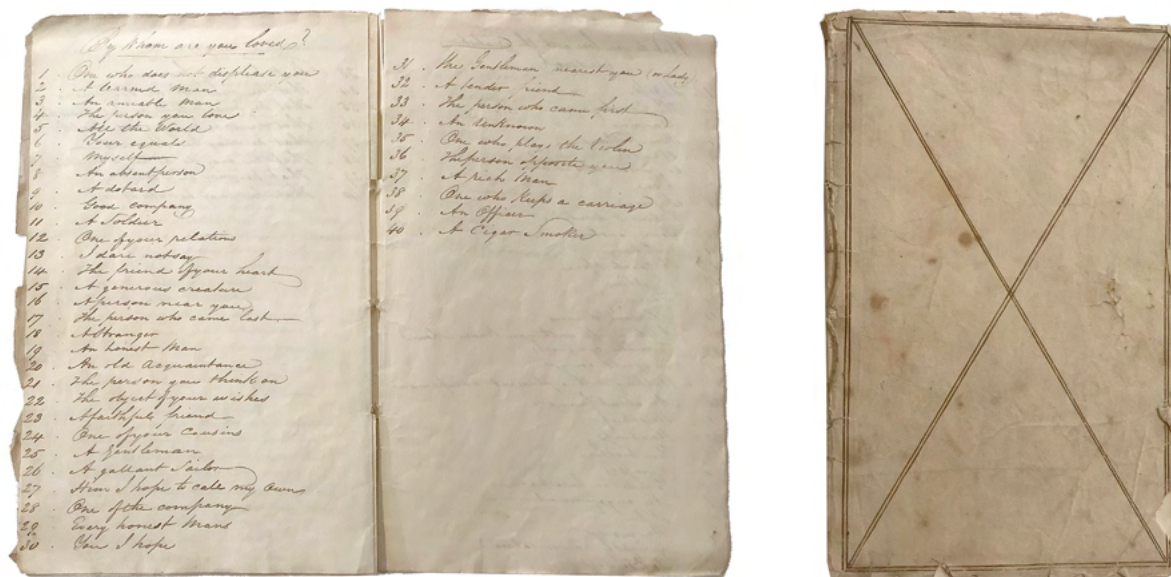 By Whom are you loved?
1 . One who does not displease you
2 . A learned Man
3 . An amiable Man
4 . The person you love
5 . All the World
6 . Your equals
7 . Myself
8 . An absent person
9 . A dotard
10 . Good company
11 . A Soldier
12 . One of your relations
13 . I dare not say
14 . The friend of your heart
15 . A generous creature
16 . A person near you
17 . The person who came last
18 . A Stranger
19 . An honest Man
20 . An old Acquaintance
21 . The person you think on
22 . The object of your wishes
23 . A faithful friend
24 . One of your Cousins
25 . A Gentleman
26 . A gallant Sailor
27 . Him I hope to call my own
28 . One of the company
29 . Every honest Man
30 . You I hope
31 . The Gentleman nearest you (or Lady)
32 . A tender friend
33 . The person who came first
34 . An Unknown
35 . One who plays the Violin
36 . The person opposite you
37 . A rich Man
38 . One who keeps a carriage
39 . An Officer
40 . A Cigar Smoker